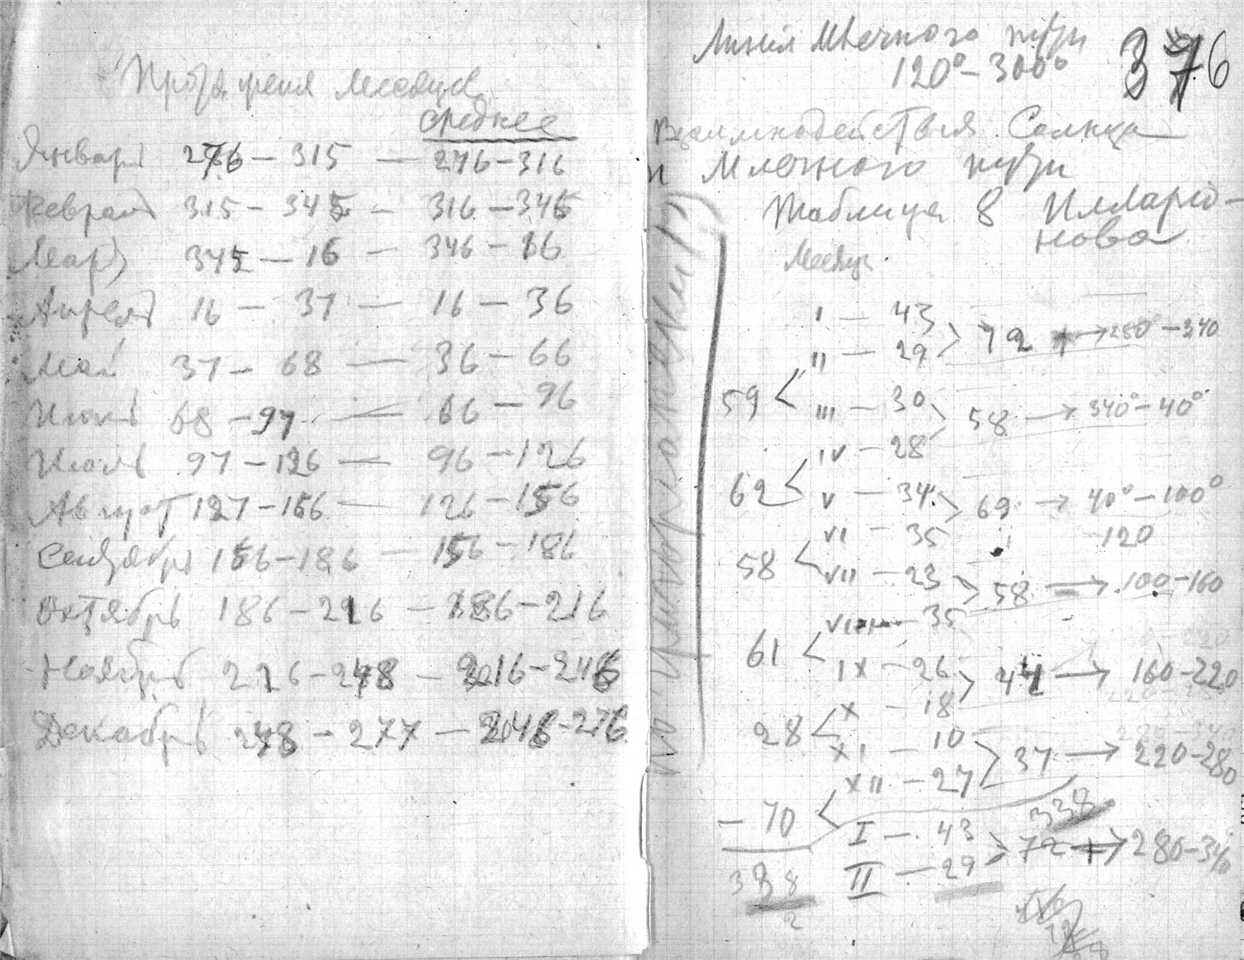 Протяжения месяцев
среднее
Январь 276 – 315 — 276–316
Февраль 315 – 345 – 316 – 346
Март 345 – 16 – 346 – 16
Апрель 16 – 37 — 16 – 36
Май 37 – 68 — 36 – 66
Июнь 68 – 97 — 66 – 96
Июль 97 – 126 — 96 – 126
Август 127 – 156 — 126 – 156
Сентябрь 156 – 186 — 156 – 186
Октябрь 186 – 216 — 186 – 216
Ноябрь 216 – 248 – 216 – 246
Декабрь 248 – 277 — 246 – 276
376
Линия Млечного пути
120° – 300°
Взаимнодействия Солнца
и Млечного пути
Таблица 8 Илларио-
нова
Месяцы
I – 43
II – 29 > 72 → 280° – 340
59 < III – 30
IV – 28 > 58 → 340° – 40°
62 < V – 34
VI – 35 > 69 → 40° – 100°
120
58 < VII – 23
VIII – 35 > 58 → 100 – 160
61 < IX – 26
X – 18 > 44 → 160 – 220
28 < XI – 10
XII – 27 > 37 → 220 – 280
338
– 70 < I – 43
II – 29 > 72 → 280 – 340
338
2